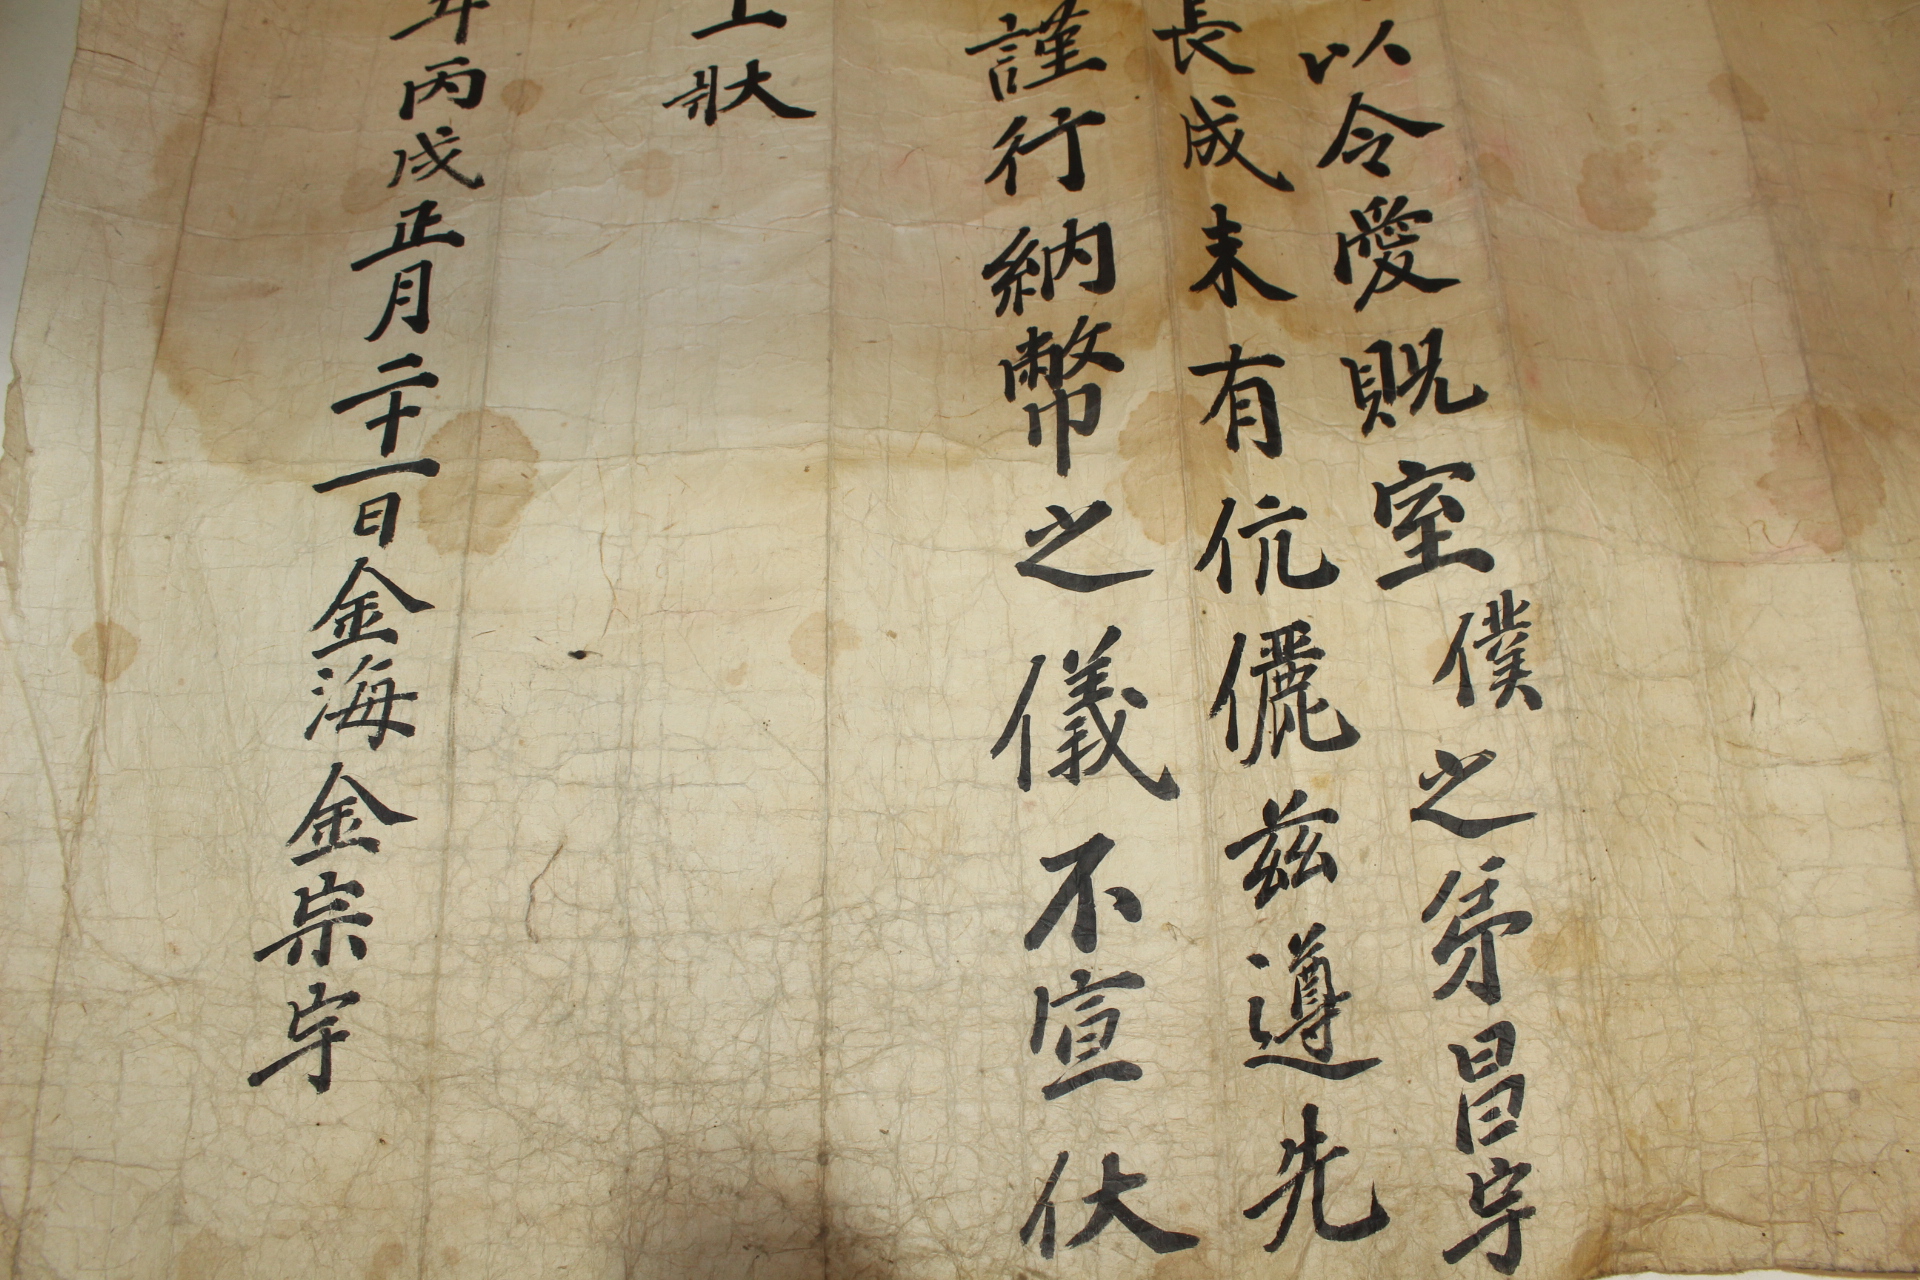 以令愛貺室僕之弟昌宇
長成未有伉儷茲遵先
謹行納幣之儀不宣伏
上狀
年丙戌正月二十一日金海金宗宇